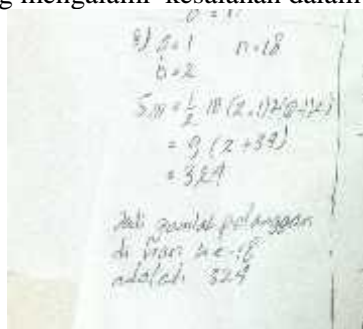 g mengalami kesalahan dalam
8) a = 1 n = 18
b = 2
= 9 (2 + 34)
= 324
Jadi jumlah pelanggan
di hari ke-18
adalah 324